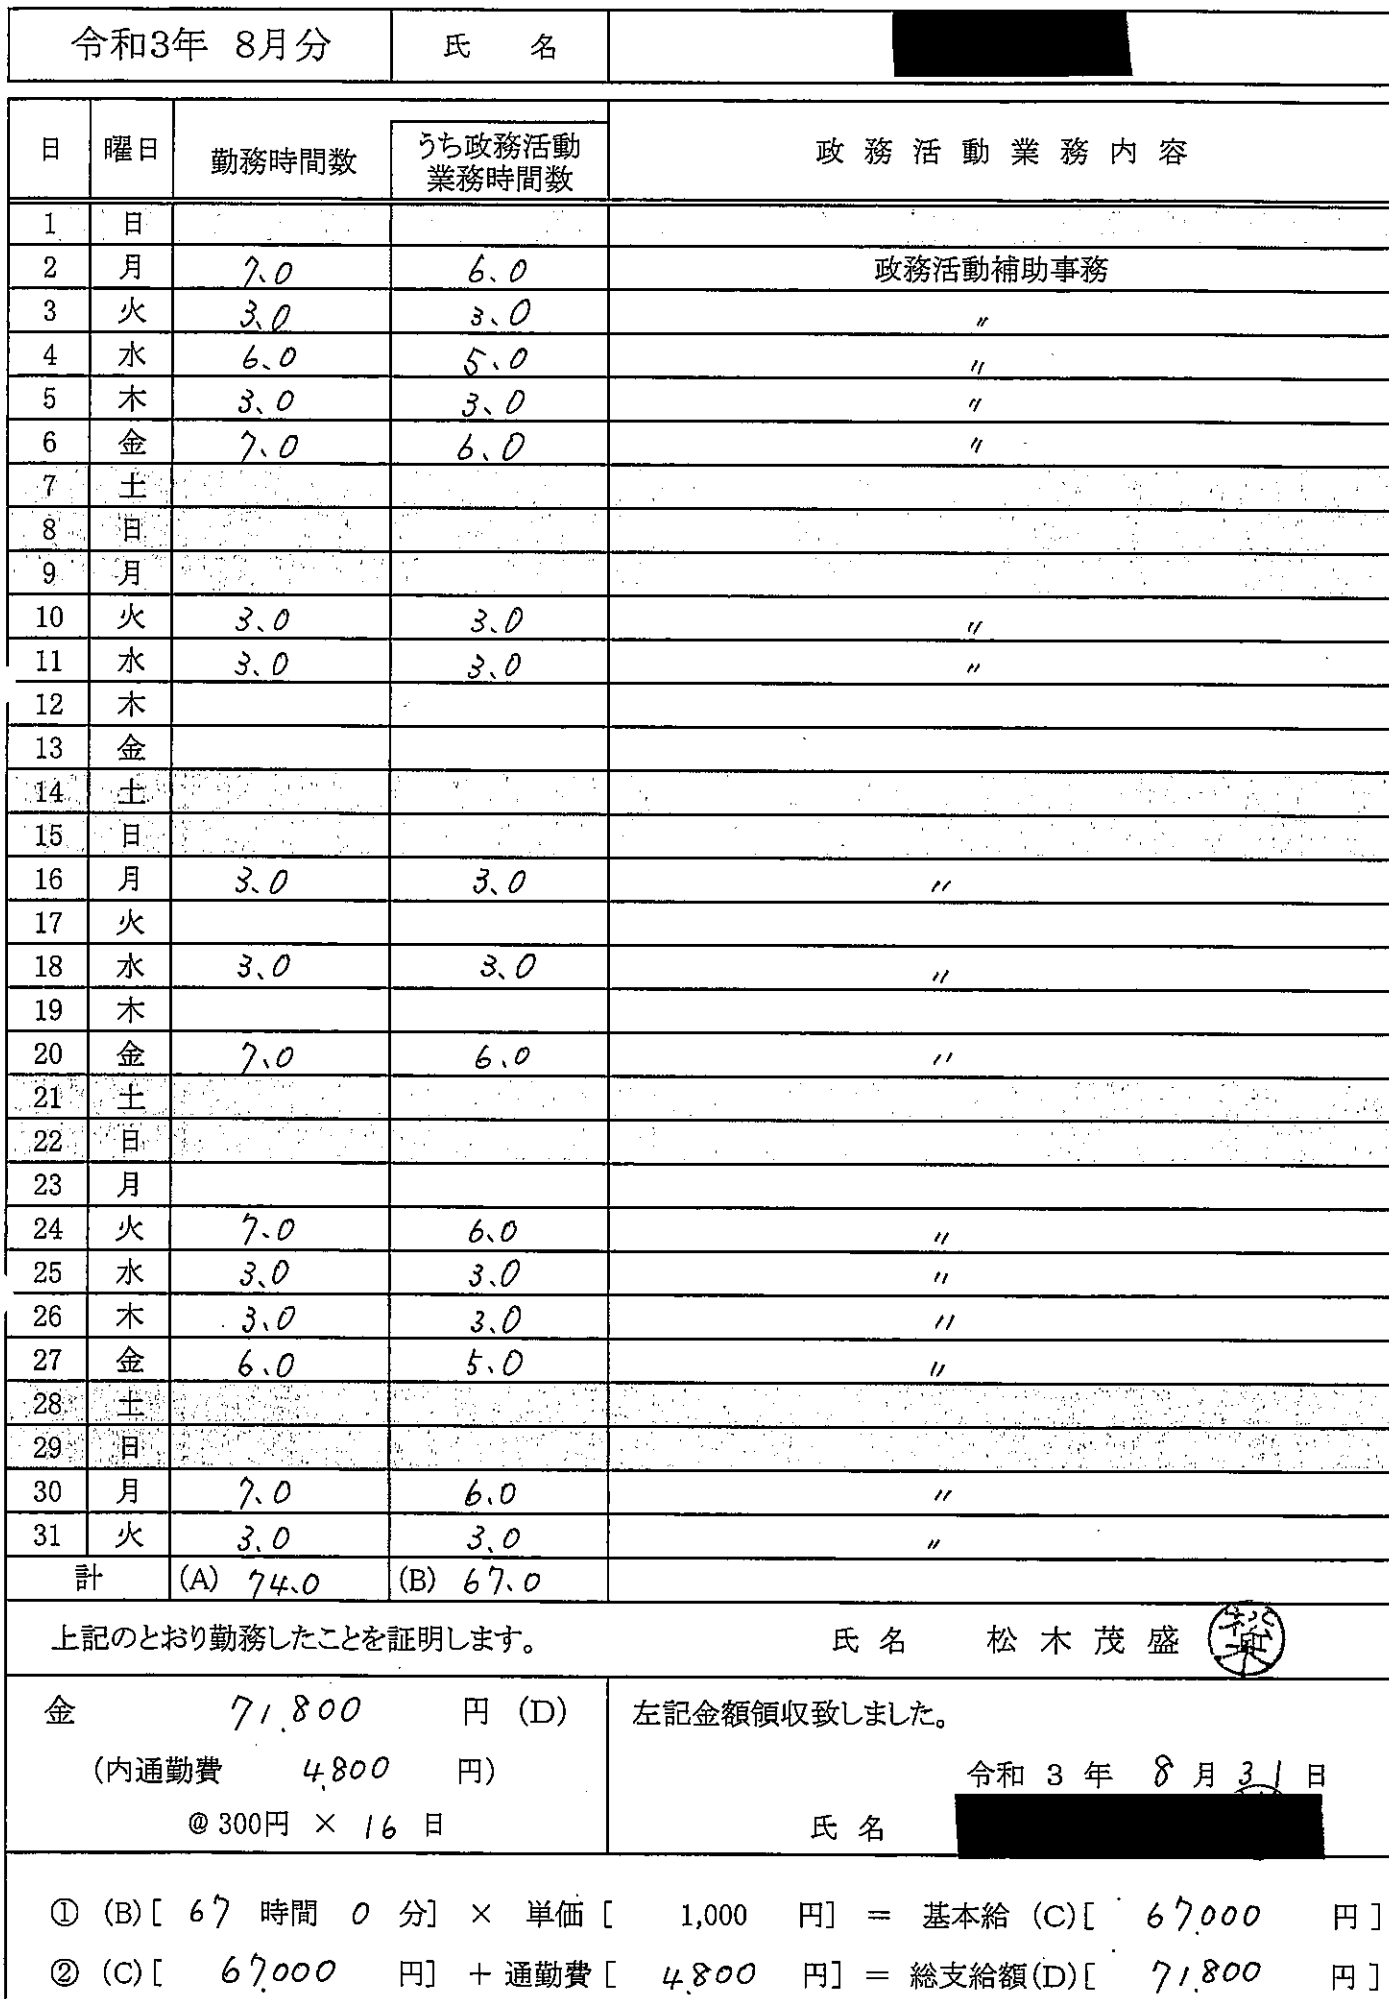 令和3年 8月分 氏 名
日 曜日 勤務時間数 うち政務活動業務時間数 政務活動業務内容
1 日
2 月 7.0 6.0 政務活動補助事務
3 火 3.0 3.0 〃
4 水 6.0 5.0 〃
5 木 3.0 3.0 〃
6 金 7.0 6.0 〃
7 土
8 日
9 月
10 火 3.0 3.0 〃
11 水 3.0 3.0 〃
12 木
13 金
14 土
15 日
16 月 3.0 3.0 〃
17 火
18 水 3.0 3.0 〃
19 木
20 金 7.0 6.0 〃
21 土
22 日
23 月
24 火 7.0 6.0 〃
25 水 3.0 3.0 〃
26 木 3.0 3.0 〃
27 金 6.0 5.0 〃
28 土
29 日
30 月 7.0 6.0 〃
31 火 3.0 3.0 〃
計 (A) 74.0 (B) 67.0
上記のとおり勤務したことを証明します。 氏名 松木茂盛
金 71,800 円 (D) 左記金額領収致しました。
(内通勤費 4,800 円) 令和 3 年 8 月 31 日
@300円 × 16 日 氏名
① (B)[ 67 時間 0 分] × 単価 [ 1,000 円] = 基本給 (C)[ 67,000 円]
② (C)[ 67,000 円] + 通勤費 [ 4,800 円] = 総支給額(D)[ 71,800 円]